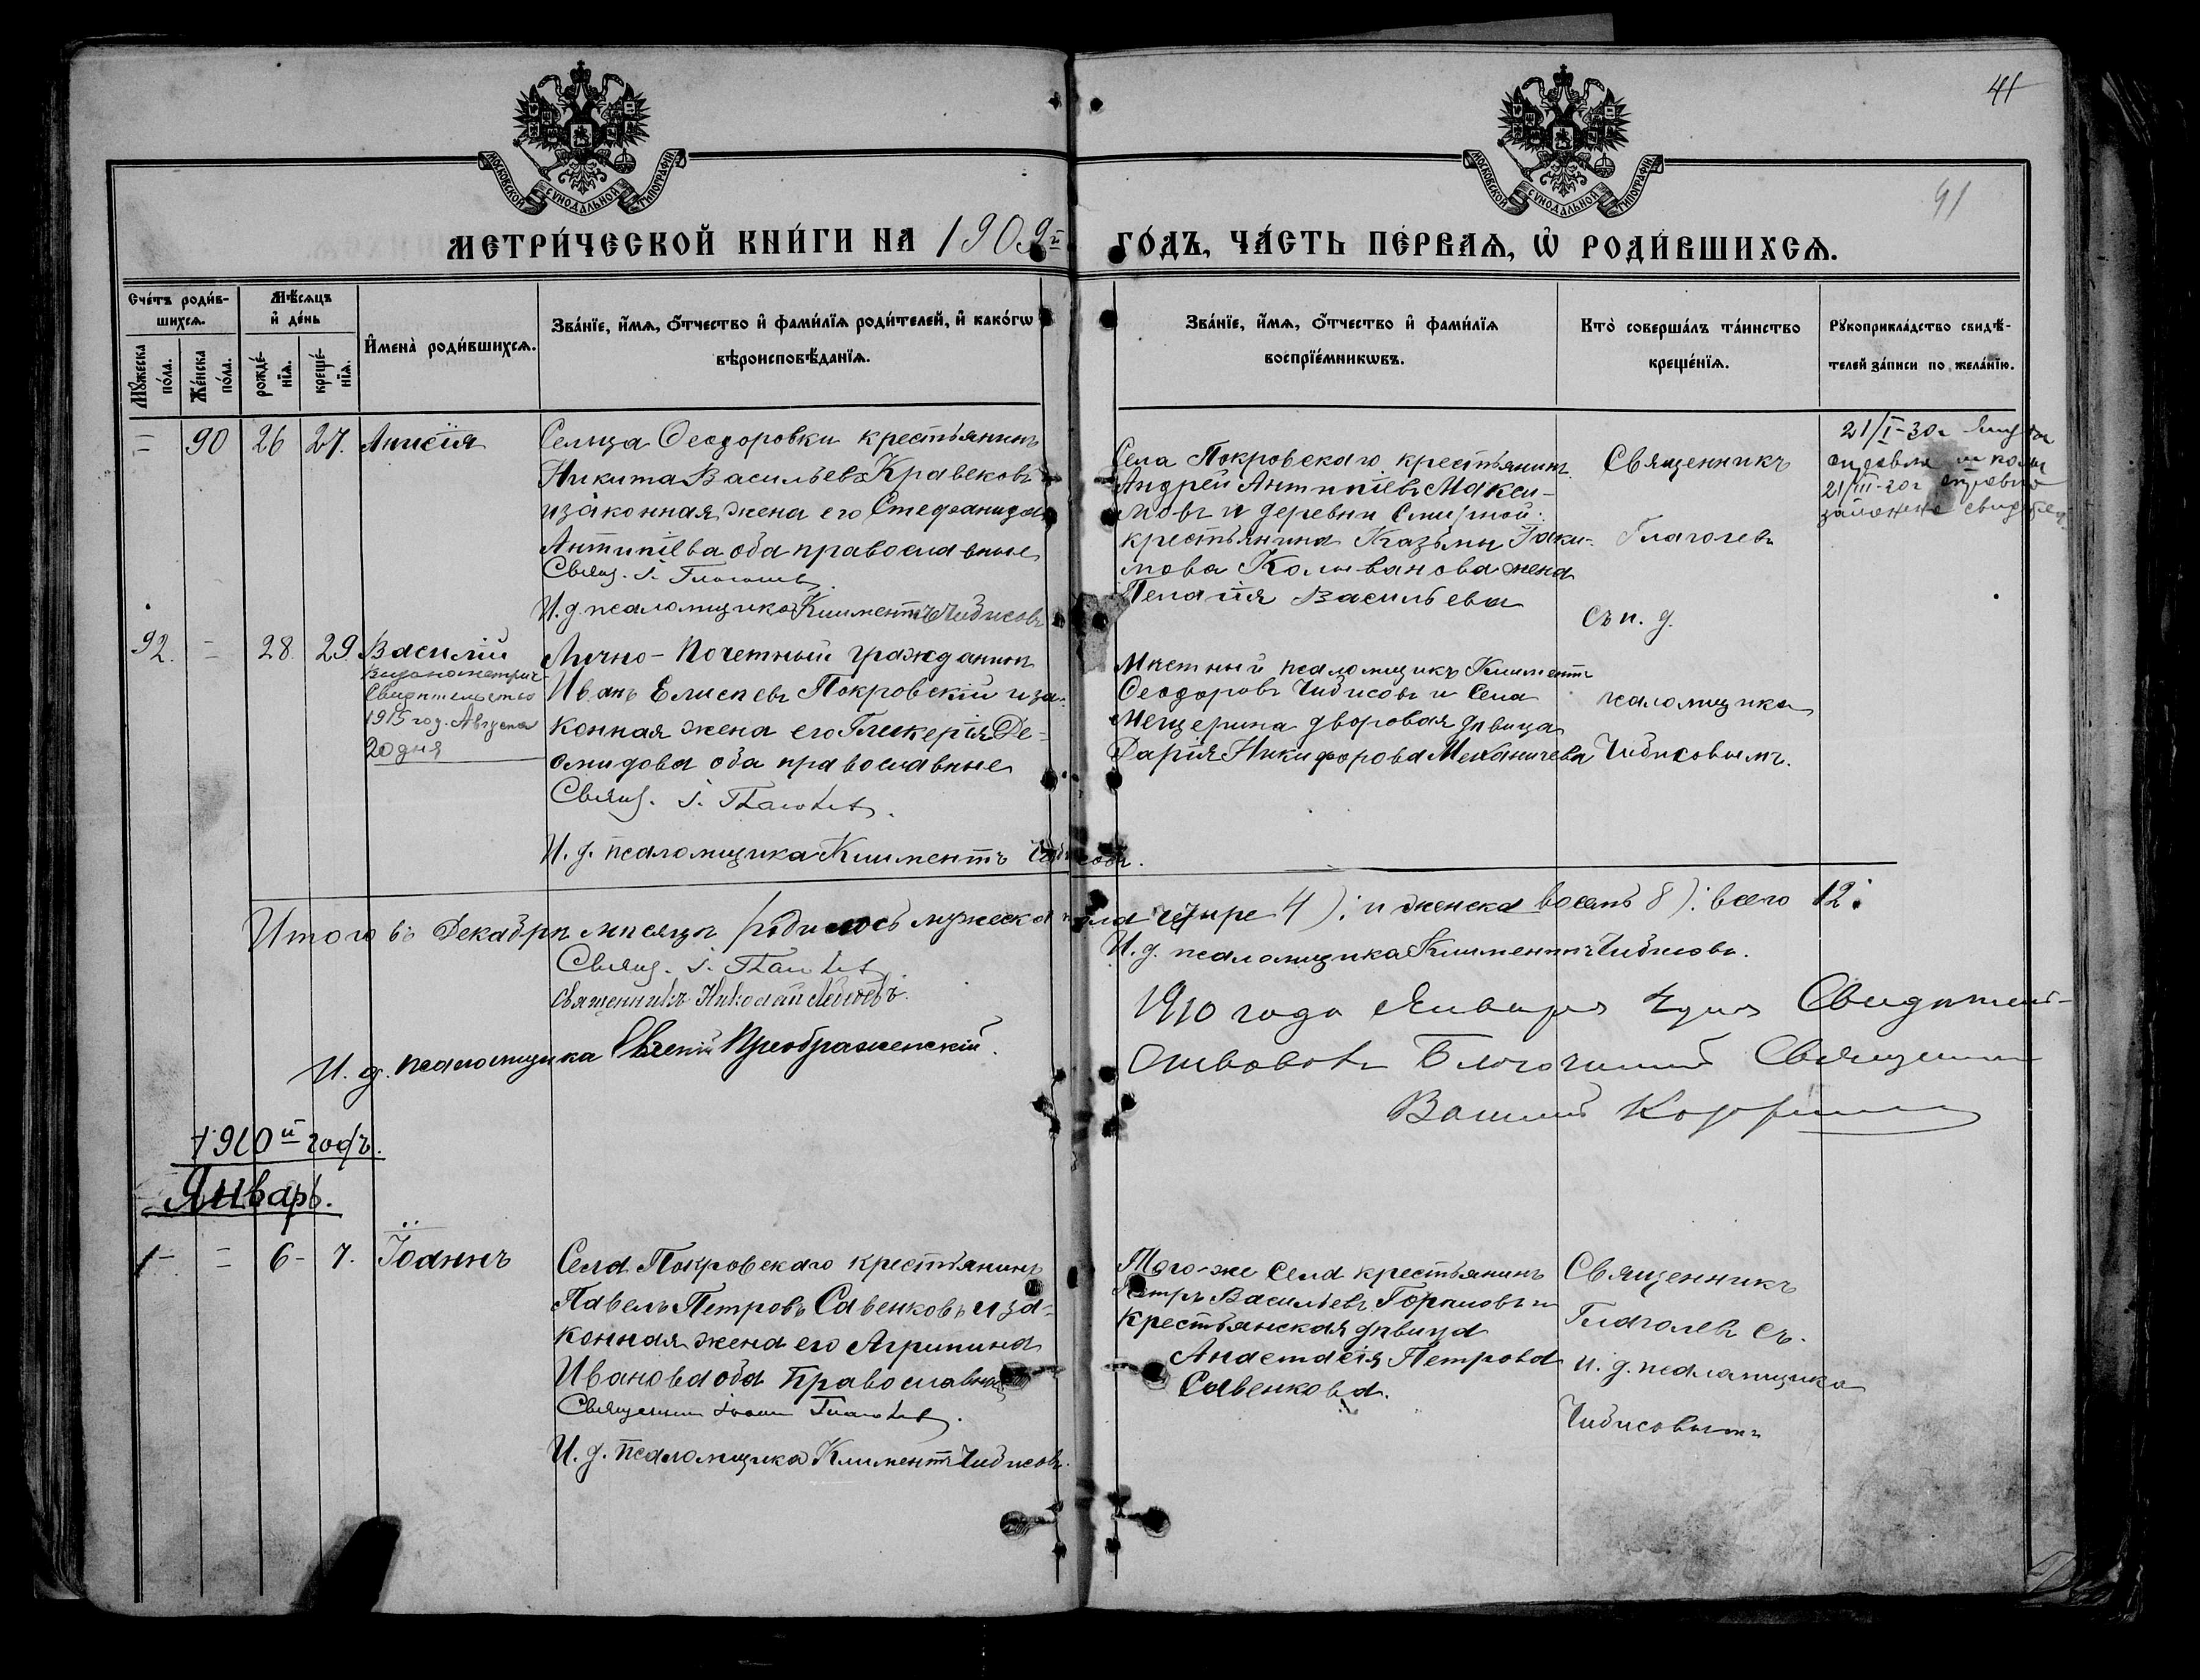 41
91
МОСКОВСКОЙ СѴНОДАЛЬНОЙ ТИПОГРАФІИ.
МОСКОВСКОЙ СѴНОДАЛЬНОЙ ТИПОГРАФІИ.
МЕТРИ́ЧЕСКОЙ КНИ́ГИ НА 1909й
ГО́ДЪ, ЧА́СТЬ ПЕ́РВАѦ, Ѡ РОДИ́ВШИХСѦ.
Сче́тъ роди́в-
шихсѧ.
Мѣ́сѧцъ
и҆ де́нь
И҆мена̀ роди́вшихсѧ.
Зва́нїе, и҆́мѧ, ѻ҆́тчество и҆ фами́лїѧ роди́телей, и҆ како́гѡ
вѣроисповѣ́данїѧ.
Мꙋ́жеска
по́ла.
Же́нска
по́ла.
рожде́-
нїѧ.
креще́-
нїѧ.
Зва́нїе, и҆́мѧ, ѻ҆́тчество и҆ фами́лїѧ
воспрїе́мникѡвъ.
Кто̀ соверша́лъ та́инство
креще́нїѧ.
Рꙋкоприкла́дство свидѣ́-
телей за́писи по жела́нїю.
= 90 26 27. Анисія
Сельца Ѳеодоровки крестьянинъ
Никита Васильевъ Кравековъ
и законная жена его Стефанида
Антипіева оба православные
Свящ. І. Глаголевъ
И. д. псаломщика Климентъ Чибисовъ
Села Покровскаго крестьянинъ
Андрей Антипіевъ Макси-
мовъ и деревни Смирной
крестьянина Козьмы Іоаки-
мова Колыванова жена
Пелагія Васильева
Священникъ
Глаголевъ
съ и. д.
21/I-30г
21/III-30г
92. = 28. 29. Василій
Выдано метрич.
Свидѣтельство
1915 год. Августа
20 дня
Лично-Почетный гражданинъ
Иванъ Елисеевъ Покровскій и за-
конная жена его Гликерія Де-
омидова оба православные
Свящ. І. Глаголевъ.
И. д. псаломщика Климентъ Чибисовъ.
Мѣстный псаломщикъ Климентъ
Ѳеодоровъ Чибисовъ и Села
Мещерина дворовая дѣвица
Дарія Никифорова Механичева
псаломщика
Чибисовымъ.
Итого въ Декабрѣ мѣсяцѣ родилось мужеска пола четыре 4); и женска восемь 8): всего 12.
Свящ. І. Глаголевъ
И. д. псаломщика Климентъ Чибисовъ.
Священникъ Николай Лебедевъ.
И. д. псаломщика Евгеній Преображенскій.
1910 года Января дня Свидѣтель-
ствовалъ Благочинный Священникъ
Василій
1910й годъ.
Январь.
1 - = 6 - 7. Іоаннъ
Села Покровскаго крестьянинъ
Павелъ Петровъ Савенковъ и за-
конная жена его Агрипина
Иванова оба православные
Священникъ Іоаннъ Глаголевъ.
И. д. псаломщика Климентъ Чибисовъ.
Того-же села крестьянинъ
Петръ Васильевъ Горшовъ и
крестьянская дѣвица
Анастасія Петрова
Савенкова.
Священникъ
Глаголевъ съ
и. д. псаломщика
Чибисовымъ